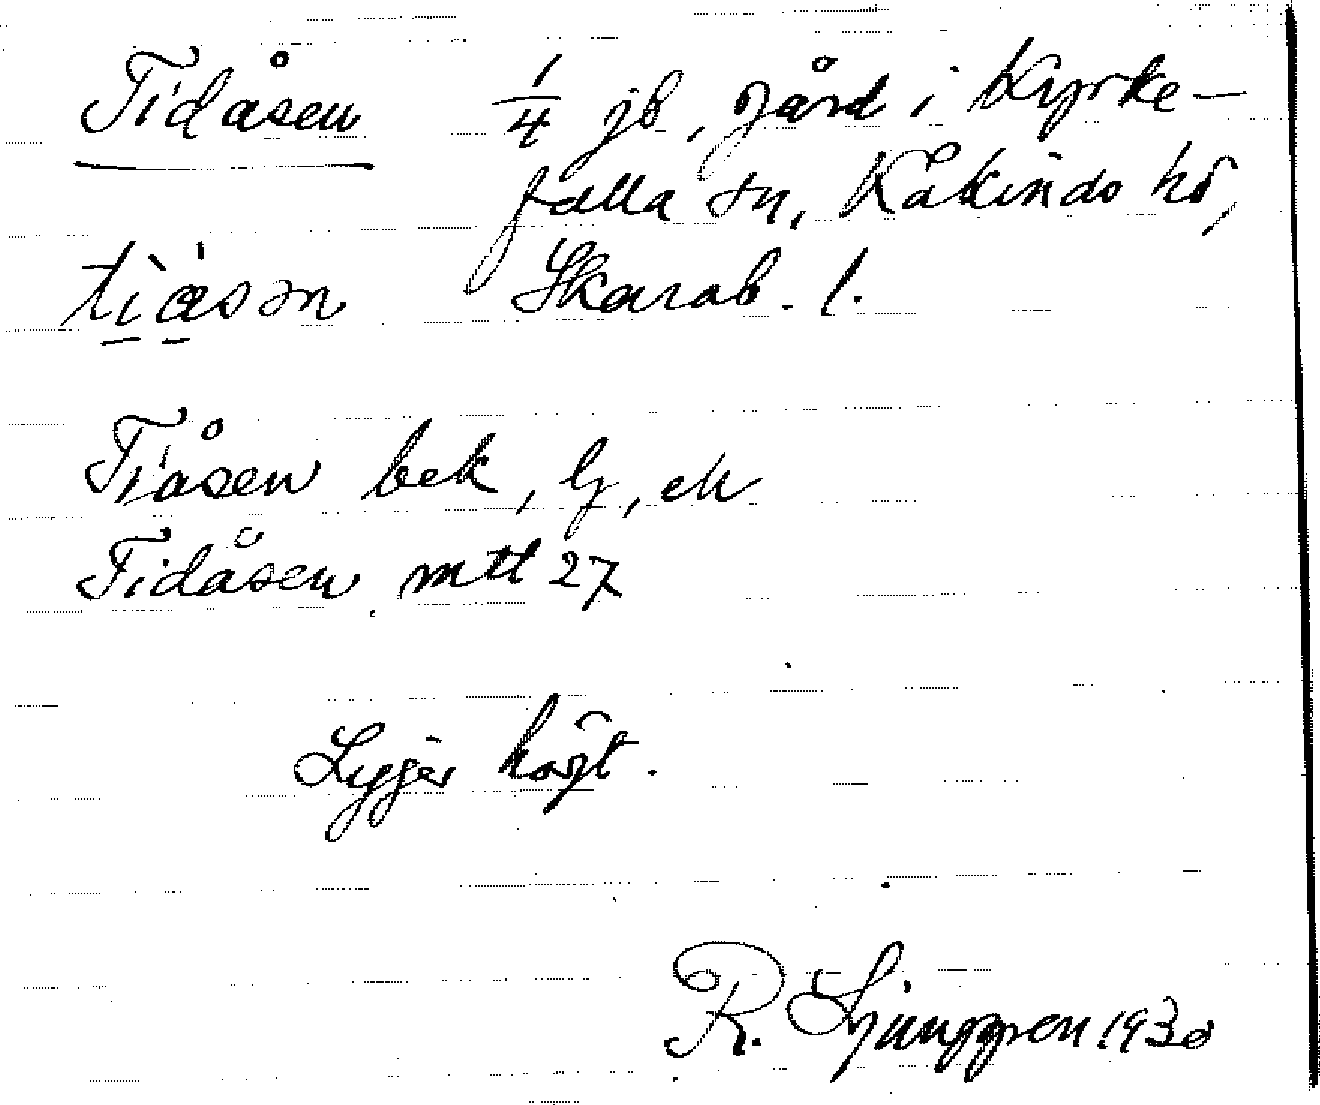 Tidåsen 1/4 jb, gård i Kyrke-
falla sn, Kåkinds hd,
Skarab. l.
Tiåsen bek, lj, ek
Tidåsen mtl 27
Ligger högt.
R. Ljunggren 1930